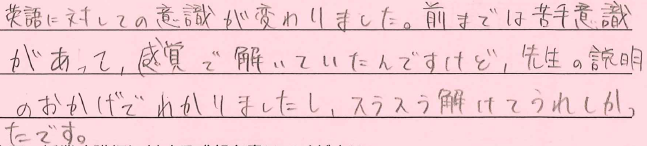 英語に対しての意識が変わりました。前までは苦手意識
があって、感覚で解いていたんですけど、先生の説明
のおかげでわかりましたし、スラスラ解けてうれしかっ
たです。